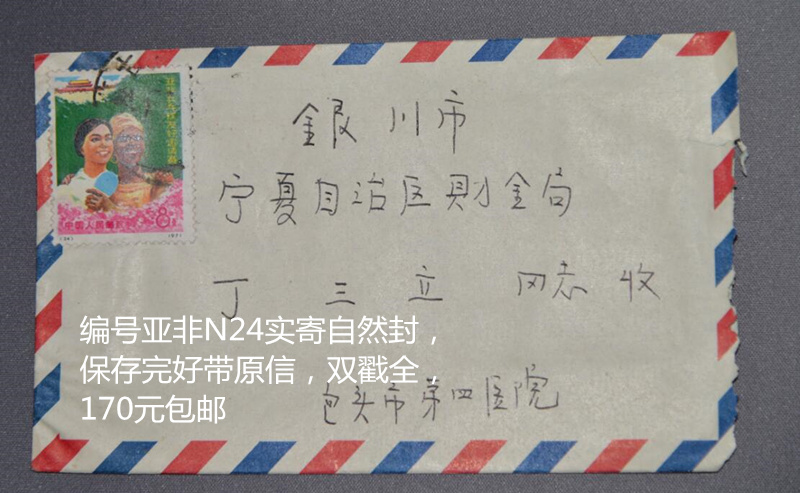 (24)
1971
中国人民邮政
8分
銀川市
宁夏自治区财金局
丁三立 同志 收
编号亚非N24实寄自然封，
保存完好带原信，双戳全，
170元包邮
包头市第四医院